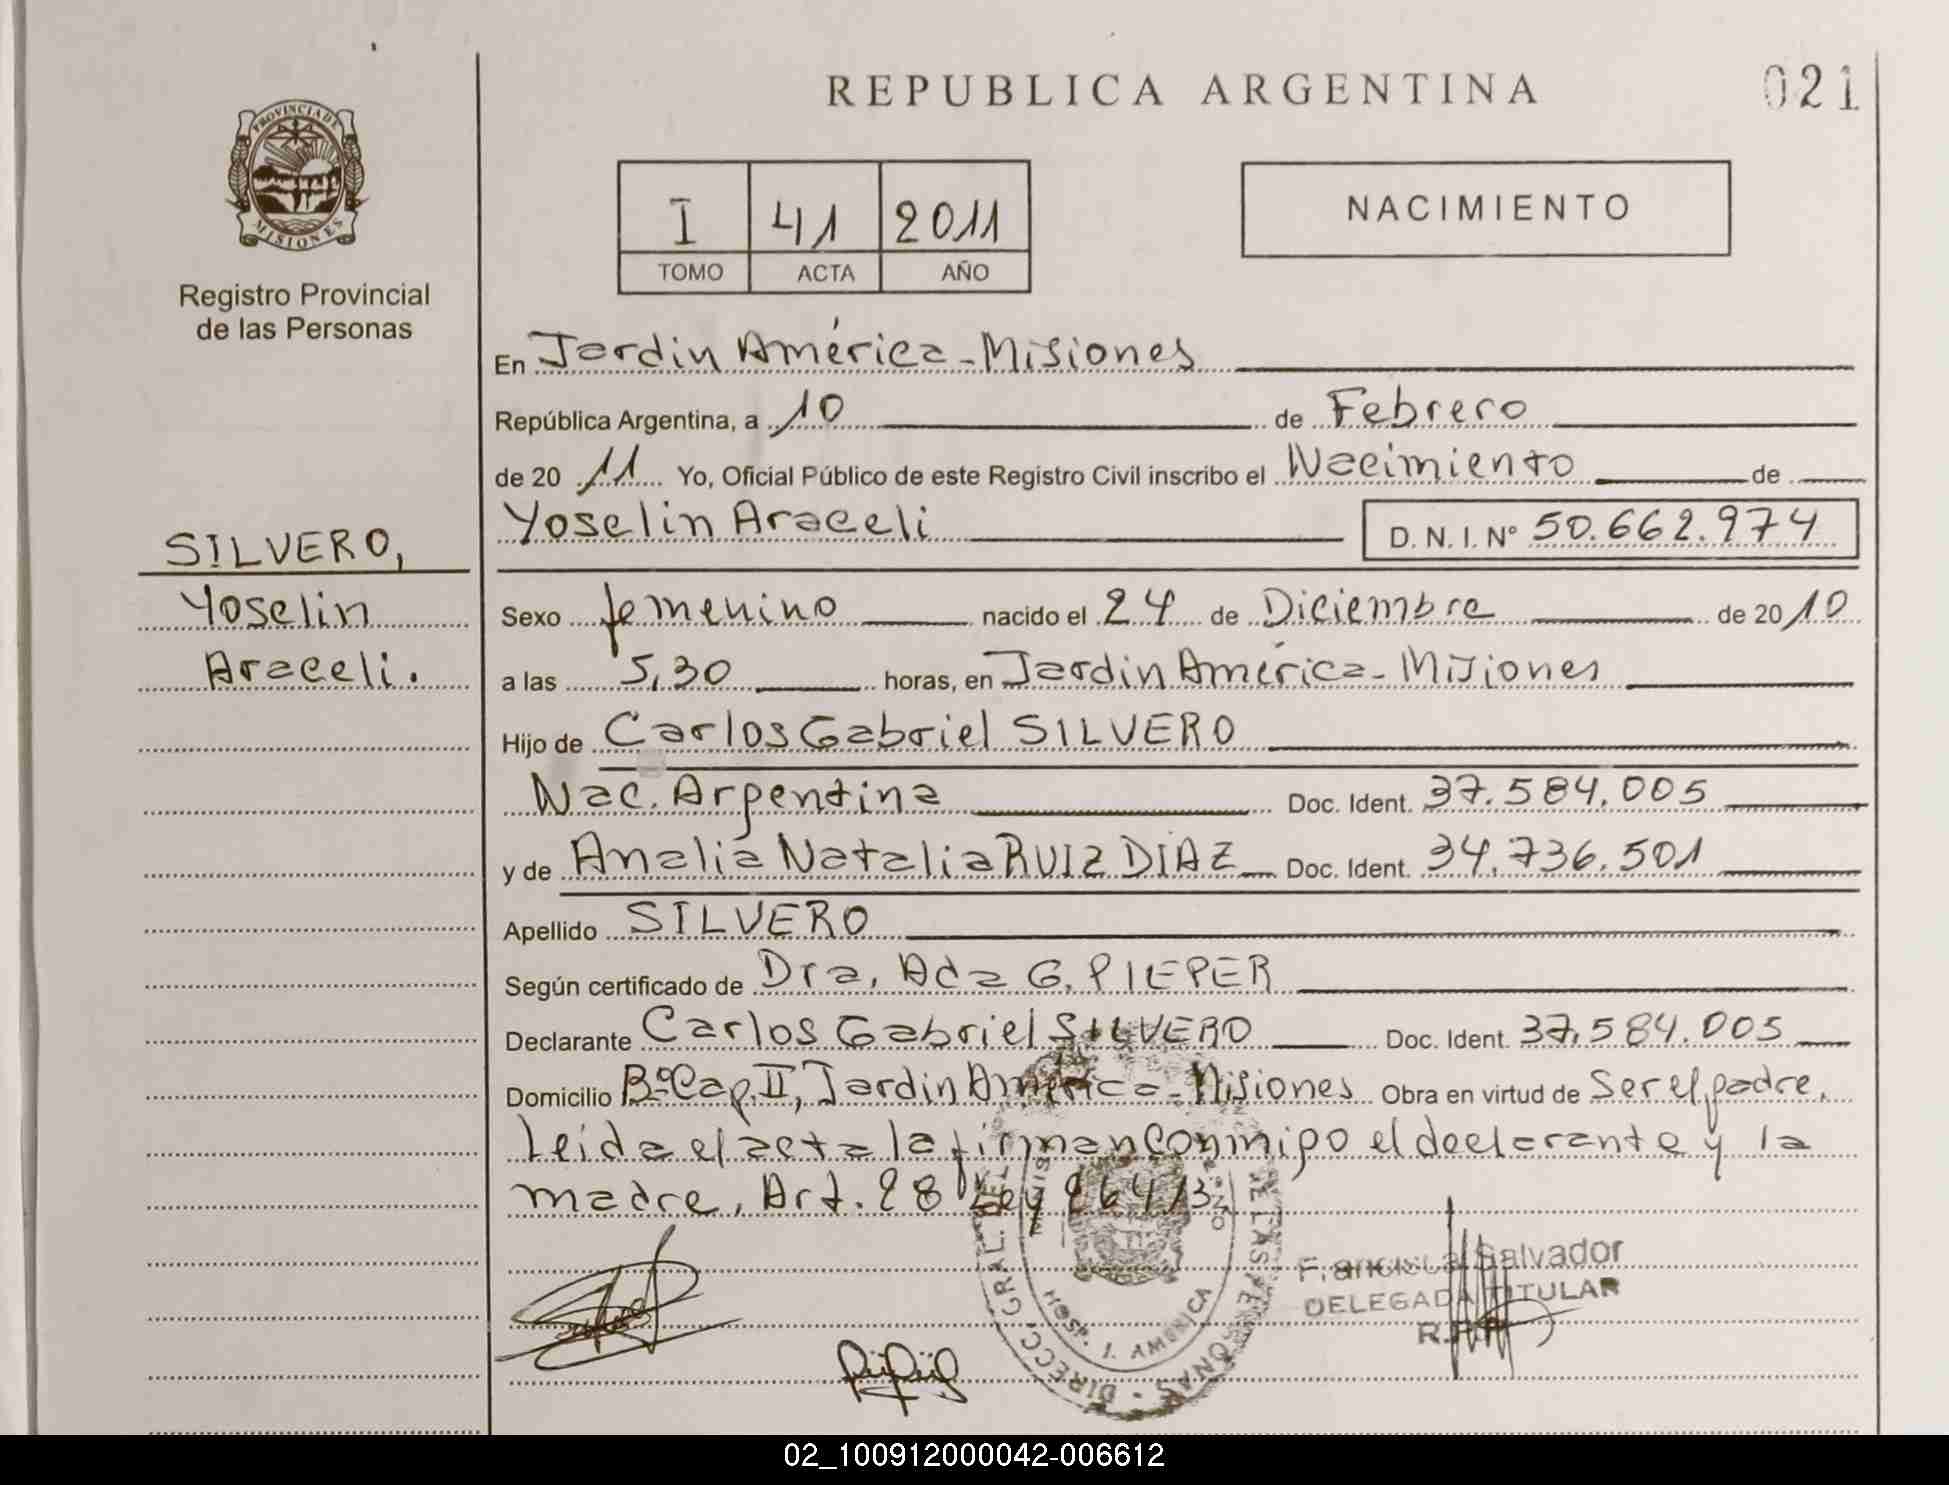 REPUBLICA ARGENTINA
021
PROVINCIA DE
MISIONES
Registro Provincial
de las Personas
I 41 2011
TOMO ACTA AÑO
NACIMIENTO
En Jardin América - Misiones
República Argentina, a 10 de Febrero
de 20 11 Yo, Oficial Público de este Registro Civil inscribo el Nacimiento de
Yoselin Araceli D. N. I. N° 50.662.974
SILVERO,
Yoselin
Araceli.
Sexo femenino nacido el 24 de Diciembre de 2010
a las 5,30 horas, en Jardin América - Misiones
Hijo de Carlos Gabriel SILVERO
Nac. Argentina Doc. Ident. 37.584.005
y de Analia Natalia RUIZ DIAZ Doc. Ident. 34.736.501
Apellido SILVERO
Según certificado de Dra. Ada G. PIEPER
Declarante Carlos Gabriel SILVERO Doc. Ident. 37.584.005
Domicilio B° Cap. II, Jardin América - Misiones Obra en virtud de Ser el padre.
Leida el acta la firman Conmigo el declarante y la
madre, Art. 28 Ley 26413
DIRECC. GRAL. DEL
DE LAS PERSONAS
HOSP. J. AMÉRICA
Salvador
DELEGADA TITULAR
02_100912000042-006612